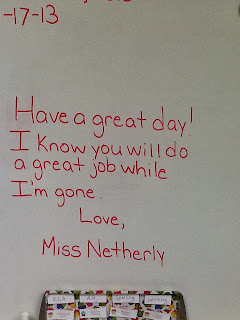 -17-13
Have a great day!
I know you will do
a great job while
I'm gone.
Love,
Miss Netherly
ELA
Spelling
Writing